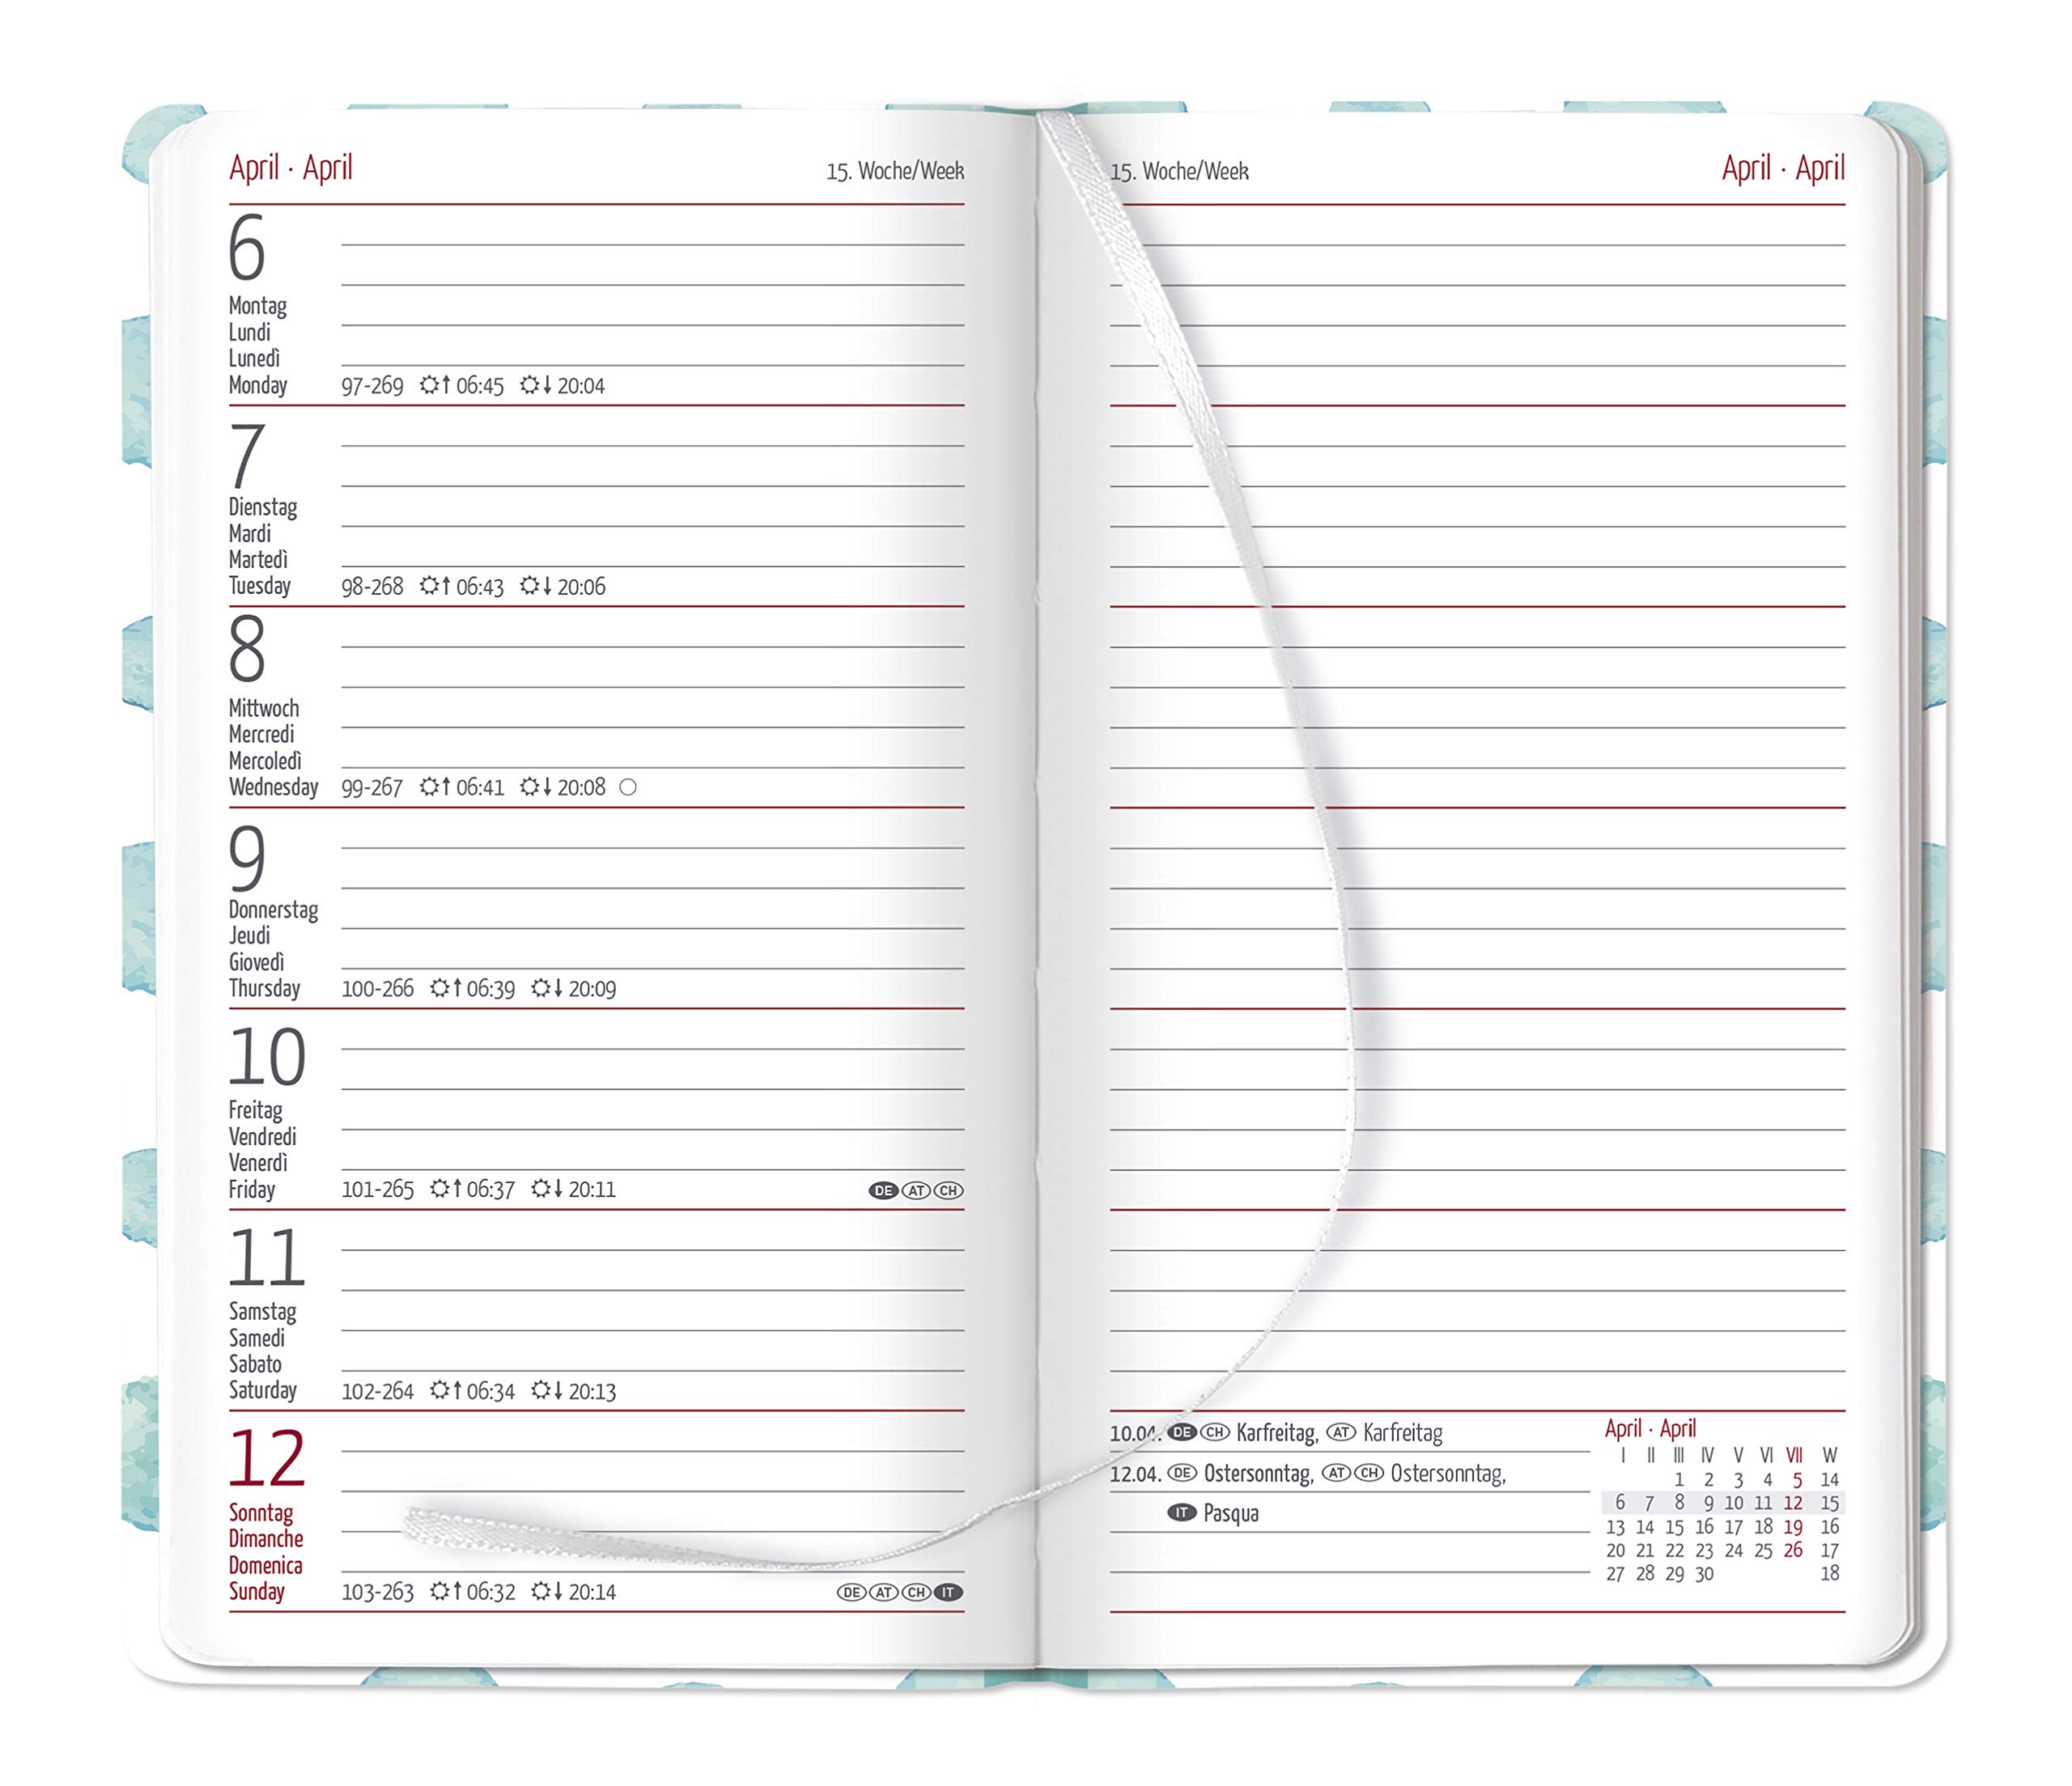 April · April
15. Woche/Week
6
Montag
Lundi
Lunedì
Monday 97-269 06:45 20:04
7
Dienstag
Mardi
Martedì
Tuesday 98-268 06:43 20:06
8
Mittwoch
Mercredi
Mercoledì
Wednesday 99-267 06:41 20:08
9
Donnerstag
Jeudi
Giovedì
Thursday 100-266 06:39 20:09
10
Freitag
Vendredi
Venerdì
Friday 101-265 06:37 20:11 DE AT CH
11
Samstag
Samedi
Sabato
Saturday 102-264 06:34 20:13
12
Sonntag
Dimanche
Domenica
Sunday 103-263 06:32 20:14 DE AT CH IT
15. Woche/Week
April · April
10.04. DE CH Karfreitag, AT Karfreitag
12.04. DE Ostersonntag, AT CH Ostersonntag,
IT Pasqua
April · April
I II III IV V VI VII W
1 2 3 4 5 14
6 7 8 9 10 11 12 15
13 14 15 16 17 18 19 16
20 21 22 23 24 25 26 17
27 28 29 30 18